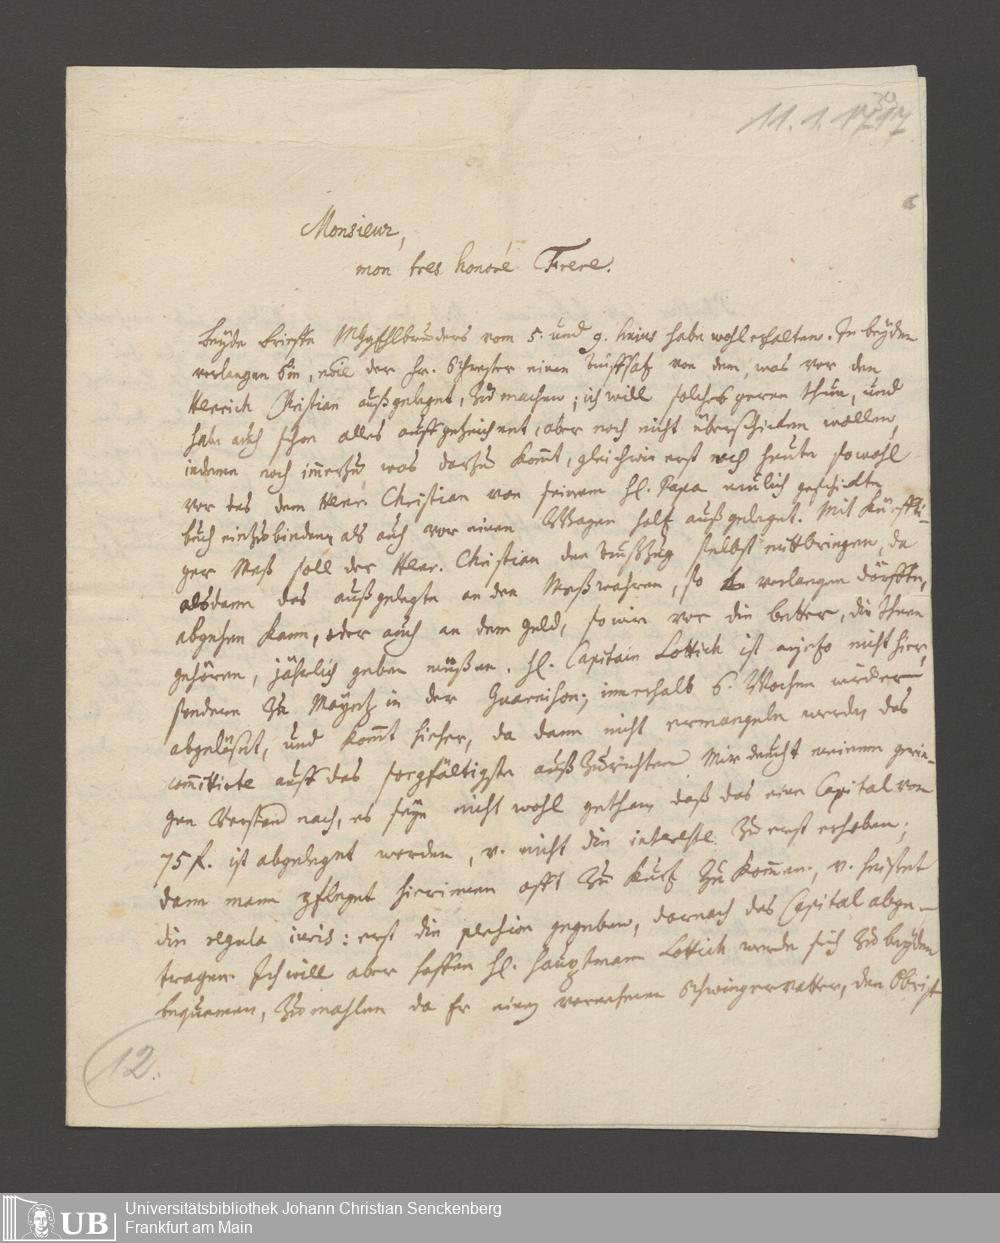 30
11. 1. 1717
Monsieur,
mon tres honoré Frere.
beyde brieffe MHgEhlbruders vom 5. und 9. huius habe wohl erhalten. In beyden
verlangen Sie, weil der Hr. Schwester einen auffsatz von dem, was vor den
Henrich Christian außgelegt, zu machen; ich will solches gerne thun, und
habe auch schon alles auffgezeichnet, aber noch nicht überschicken wollen,
indeme noch immerzu was darzu kommt, gleichwie erst noch heute sowohl
vor das dem Henr. Christian von seinem Hl. Papa neulich geschickte
buch einzubinden als auch vor einen Wagen holtz außgelegt. Mit künffti-
ger Meß soll der Henr. Christian den außzug selbst mitbringen, da
alsdann das außgelegte an den Meßwahren, so verlangen dörffte,
abgehen kann, oder auch an dem geld, so wir vor die better, die Ihnen
gehören, jährlich geben müßen. Hl. Capitain Lottich ist anjetzo nicht hier,
sondern zu Mayntz in der Guarnison; innerhalb 6. Wochen wird er
abgelößt, und kommt hieher, da dann nicht ermangeln werde, das
committirte auff das sorgfältigste außzurichten. Mir deucht meinem gerin-
gen Verstand nach, es seye nicht wohl gethan, daß das eine Capital von
75 f. ist abgelegt worden, v. nicht die interesse zu erst erhoben;
dann mann pfleget hierinnen offt zu kurtz zu kommen, v. heisset
die regula iuris: erst die pension gegeben, darnach das Capital abge-
tragen. Ich will aber hoffen Hl. Hauptmann Lottich werde sich zu beyden
bequemen, zumahlen da Er einen vornehmen Schwiegervatter, den Obrist
12.
UB
Universitätsbibliothek Johann Christian Senckenberg
Frankfurt am Main